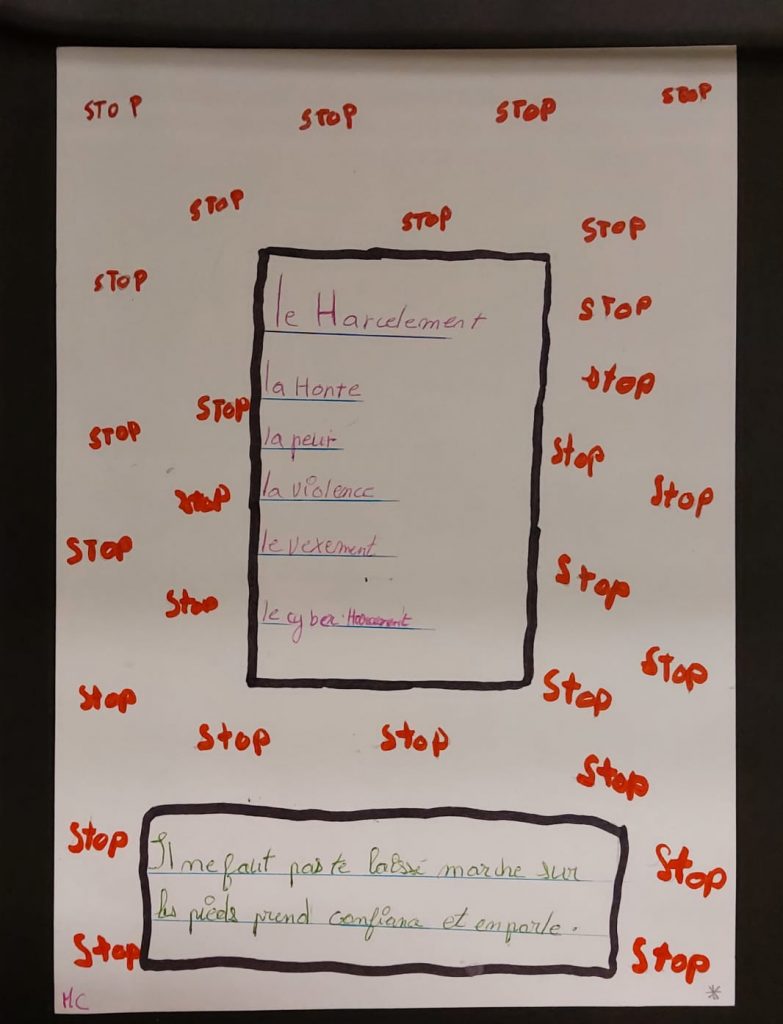 STOP STOP STOP STOP
STOP STOP STOP
STOP STOP
le Harcelement
STOP
la Honte
STOP STOP
la peur
Stop
la violence
STOP Stop
STOP
le vexement
Stop
STOP
le cyber Harcelement
Stop
Stop Stop
Stop Stop
Stop
Stop Stop
Il ne faut pas te laissé marche sur
les pieds prend confiance et en parle.
Stop Stop
MC